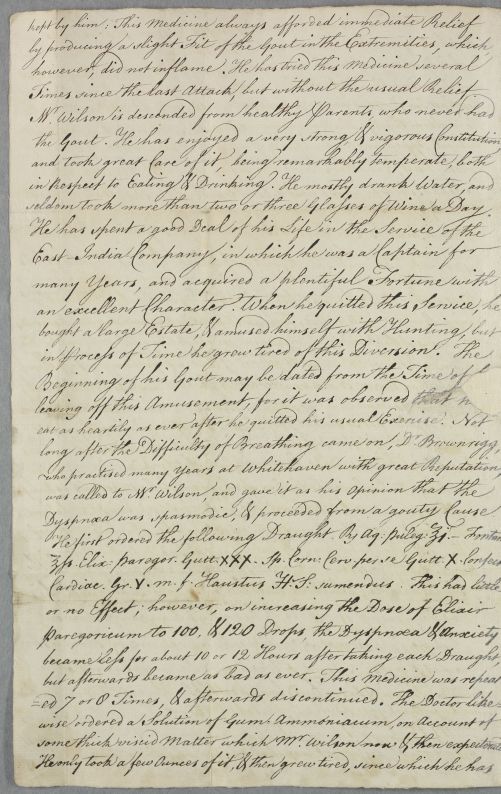 kept by him: This Medicine always afforded immediate Relief
by producing a slight Fit of the Gout in the Extremities, which
however, did not inflame. He has tried this Medicine several
Times since the last Attack, but without the usual Relief
Mr. Wilson is descended from healthy Parents, who never had
the Gout. He has enjoyed a very strong & vigorous Constitution
and took great Care of it, being remarkably temperate, both
in Respect to Eating & Drinking. He mostly drank Water, and
seldom took more than two or three Glasses of Wine a Day.
He has spent a good Deal of his Life in the Service of the
East India Company, in which he was a Captain for
many Years, and acquired a plentiful Fortune with
an excellent Character. When he quitted this Service, he
bought a large Estate, & amused himself with Hunting, but
in Process of Time he grew tired of this Diversion. The
Beginning of his Gout may be dated from the Time of
leaving off this Amusement, for it was observed that
eat as heartily as ever after he quitted his usual Exercise. Not
long after the Difficulty of Breathing came on, Dr. Brownrigg,
who practised many Years at Whitehaven with great Reputation,
was called to Mr. Wilson, and gave it as his Opinion that the
Dyspnœa was spasmodic, & proceeded from a gouty Cause
He first ordered the following Draught. Rx Aq: Puleg: ℥i -
℥ſs. Elix: Paregor. Gutt. XXX. Sp. Corn: Cerv: per se Gutt. X.
Cardiac. Gr. V. m. f. Haustus H: S: sumendus. This had little
or no Effect; however, on increasing the Dose of Elixir
Paregoricum to 100. & 120 Drops, the Dyspnœa & Anxiety
became less for about 10 or 12 Hours after taking each Draught
but afterwards became as bad as ever. This Medicine was repeat
=ed 7 or 8 Times, & afterwards discontinued. The Doctor like
wise ordered a Solution of Gum Ammoniacum, on Account of
some thick viscid Matter which Mr. Wilson now & then expectorated
He only took a few Ounces of it, & then grew tired, since which he has